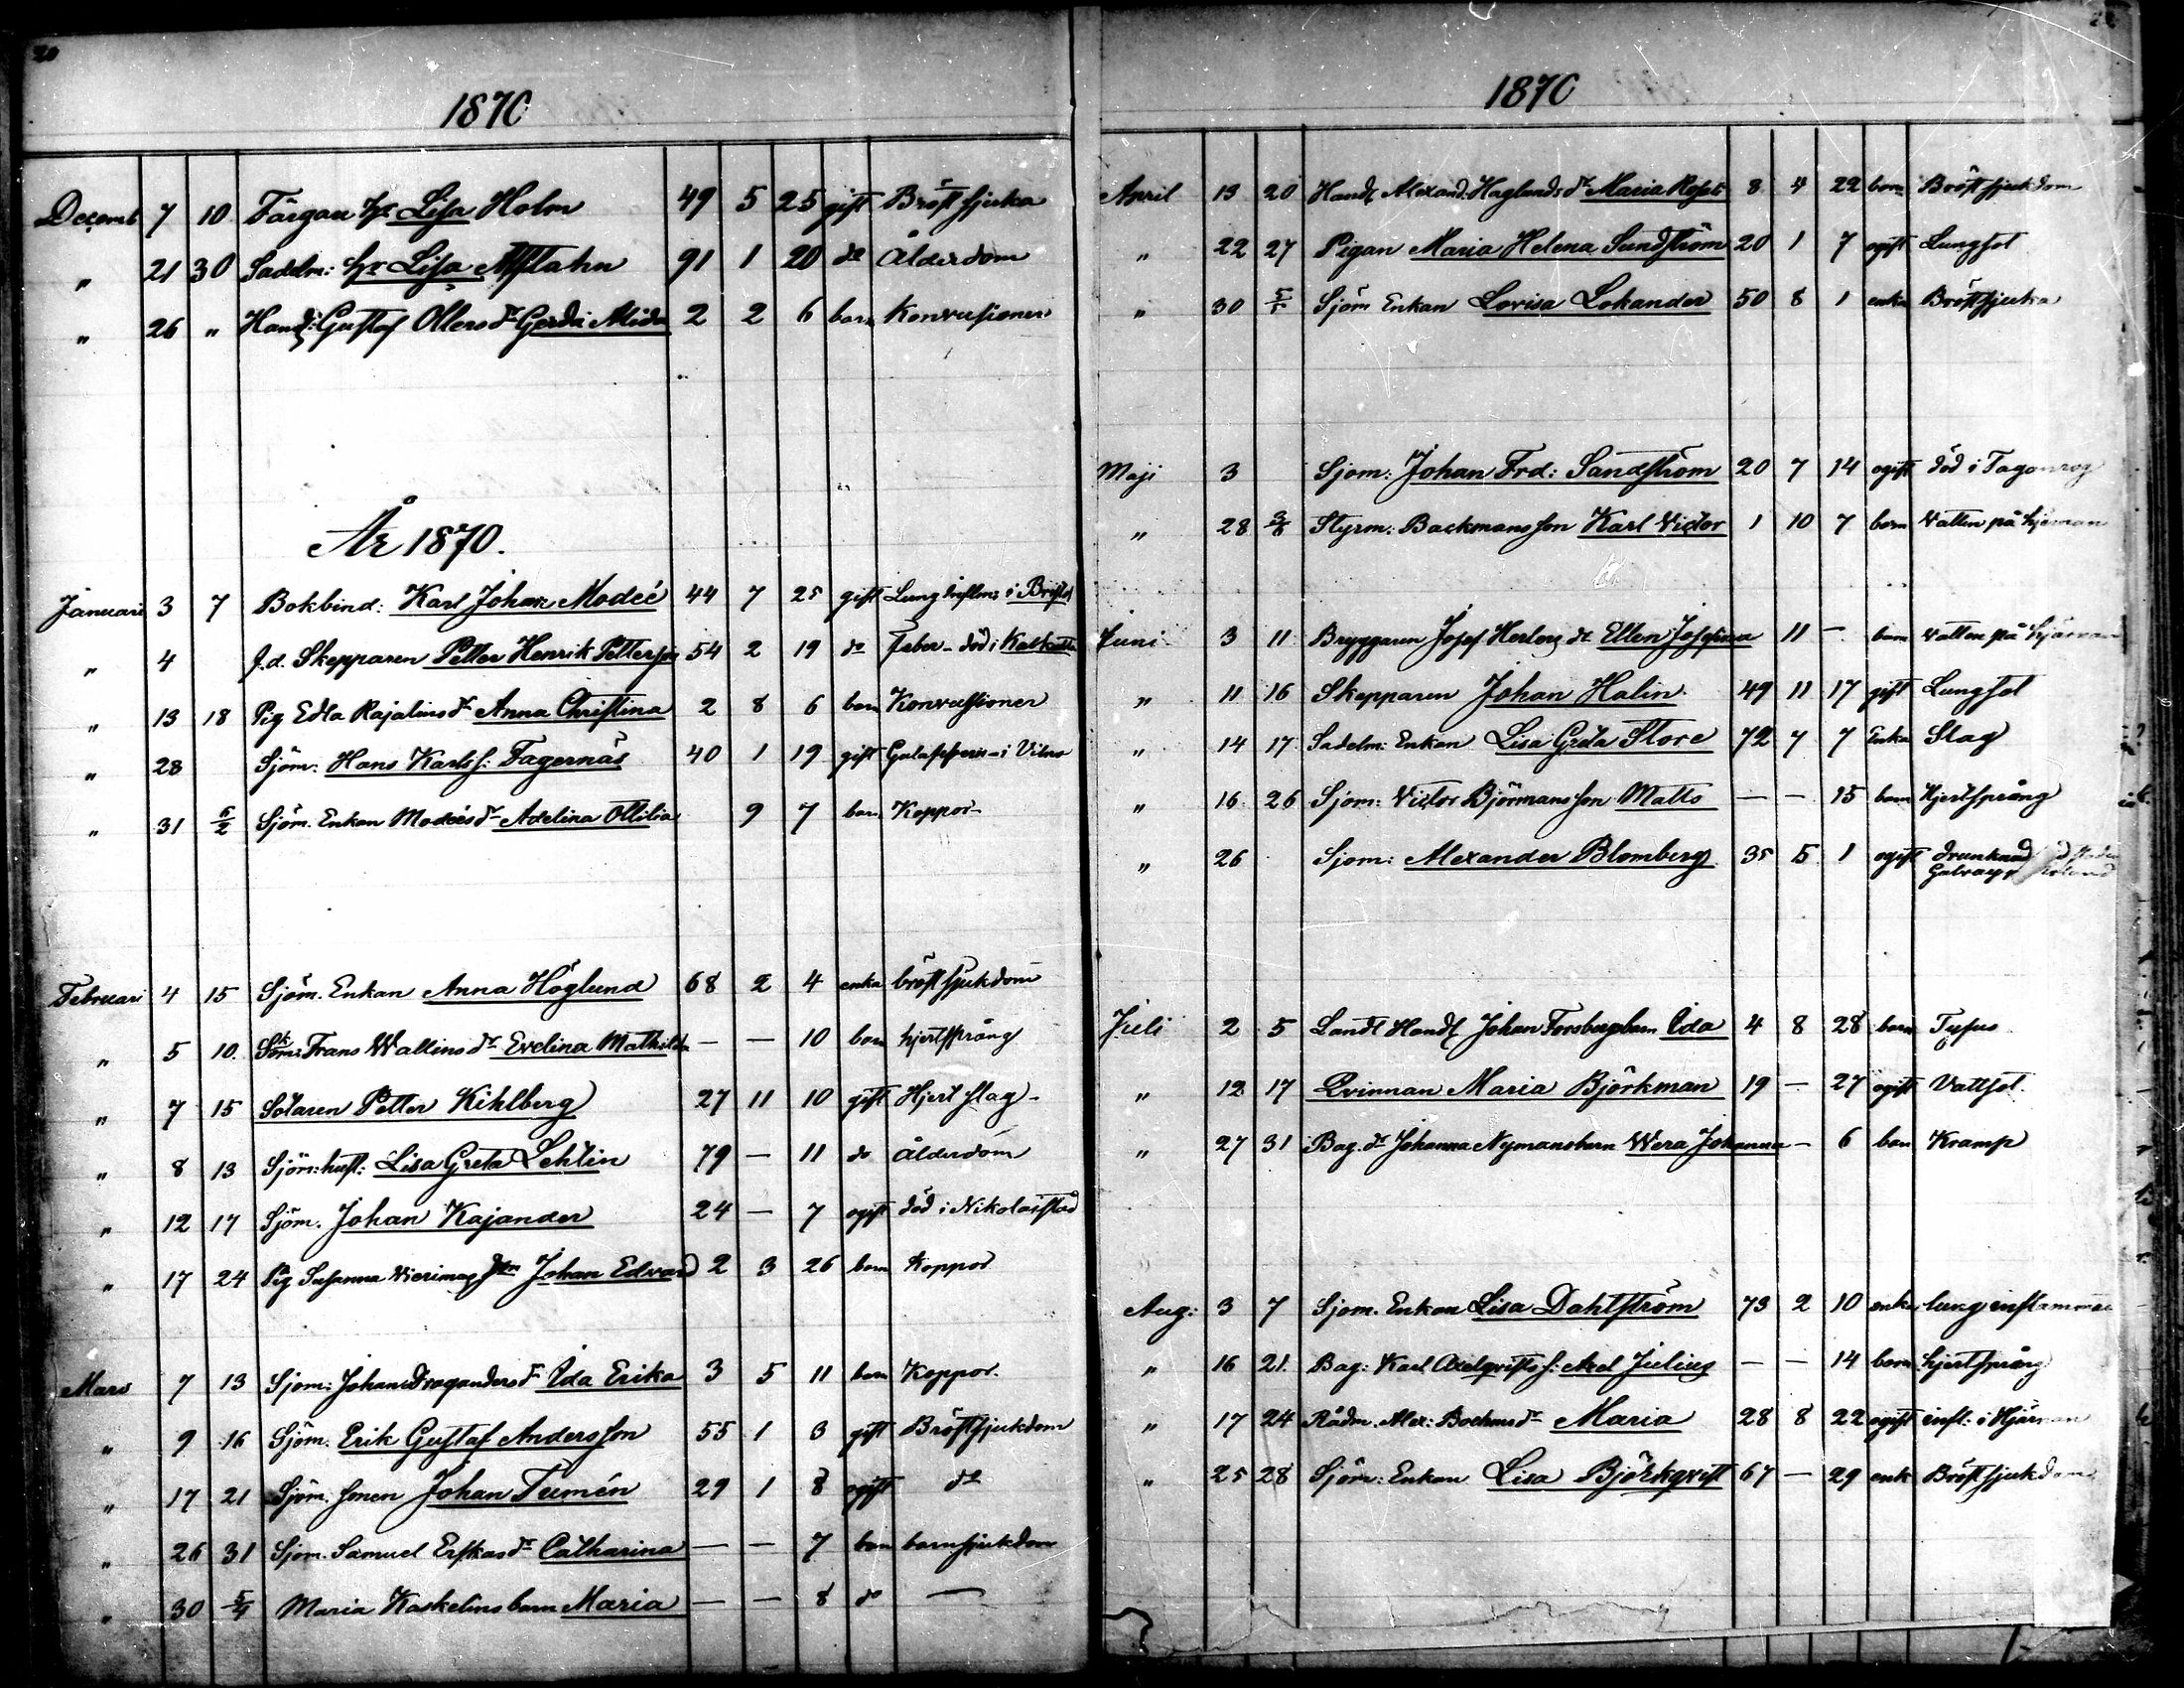 20
1870
Decemb 7 10 Färgau hr Lisa Holm 49 5 25 gift Bröstsjuka
" 21 30 Sadelm: hr Lisa Åfstahn 91 1 20 do Ålderdom
" 26 " Handl: Gustaf Ollers dr Gerda Alida 2 2 6 barn Konvulsioner
År 1870.
Januari 3 7 Bokbind: Karl Johan Modeé 44 7 25 gift Lunginflm: i Bristol
" 4 f.d. Skepparen Petter Henrik Pettersson 54 2 19 do Feber - död i Kalkutta
" 13 18 Pig Edla Rajalins dr Anna Christina 2 8 6 barn Konvulsioner
" 28 Sjöm: Hans Karlss: Fagernäs 40 1 19 gift i
" 31 6/2 Sjöm. Enkan Modeés dr Adelina Ottilia 9 7 barn Koppor
Februari 4 15 Sjöm. Enkan Anna Höglund 68 2 4 enka bröstsjukdom
" 5 10 Frans Wallins dr Evelina Mathilda — — 10 barn hjertsprång
" 7 15 Sotaren Petter Kihlberg 27 11 10 gift Hjertslag
" 8 13 Sjöm: hust: Lisa Greta Lehtin 79 — 11 do ålderdom
" 12 17 Sjöm. Johan Kajander 24 — 7 ogift död i Nikolaistad
" 17 24 Pig Susanna son Johan Edvard 2 3 26 barn Koppor
Mars 7 13 Sjom: Johan Draganders dr Ida Erika 3 5 11 barn Koppor.
" 9 16 Sjöm. Erik Gustaf Andersson 55 1 3 gift Bröstsjukdom
" 17 21 Sjöm. sonen Johan Tumén 29 1 8 ogift do
" 26 31 Sjom. Samuel Erskas dr Catharina — — 7 barn barnsjukdom
" 30 5/4 Maria Kaskelins barn Maria — — 8 do —
1870
April 13 20 Handl Alexand: Haglunds dr Maria 8 4 22 barn Bröstsjukdom
" 22 27 Pigan Maria Helena Sundström 20 1 7 ogift Lungsot
" 30 5/5 Sjöm Enkan Lovisa Lokander 50 8 1 enka Bröstsjuka
Maji 3 Sjom: Johan Frd: Sandström 20 7 14 ogift död i Taganrog
" 28 3/6 Styrm: Backmans son Karl Victor 1 10 7 barn Vatten på hjernan
Juni 3 11 Bryggaren Josef Herlers dr Ellen Josefina 11 — barn vatten på hjärnan
" 11 16 Skepparen Johan Halin. 49 11 17 gift Lungsot
" 14 17 Sadelm: Enkan Lisa Greta Store 72 7 7 Enka Slag
" 16 26 Sjom: Victor Björmans son Matts — — 15 barn Hjertsprång
" 26 Sjom: Alexander Blomberg 35 5 1 ogift drunknad
Juli 2 5 Landt Handl Johan Forsbergs barn Ida 4 8 28 barn Tyfus
" 12 17 Qvinnan Maria Björkman 19 — 27 ogift Vattsot.
" 27 31 Bag. dr Johanna Nymans barn Wera Johanna — 6 barn Kramp
Aug: 3 7 Sjom. Enkan Lisa Dahlström 73 2 10 enka lunginflammat
" 16 21. Bag: Karl Axelqvists s: Axel Julius — — 14 barn hjertsprång
" 17 24 Rådm. Alex: Bockms dr Maria 28 8 22 ogift infl: i Hjärnan
" 25 28 Sjöm: Enkan Lisa Björkqvist 67 — 29 enk Bröstsjukdom